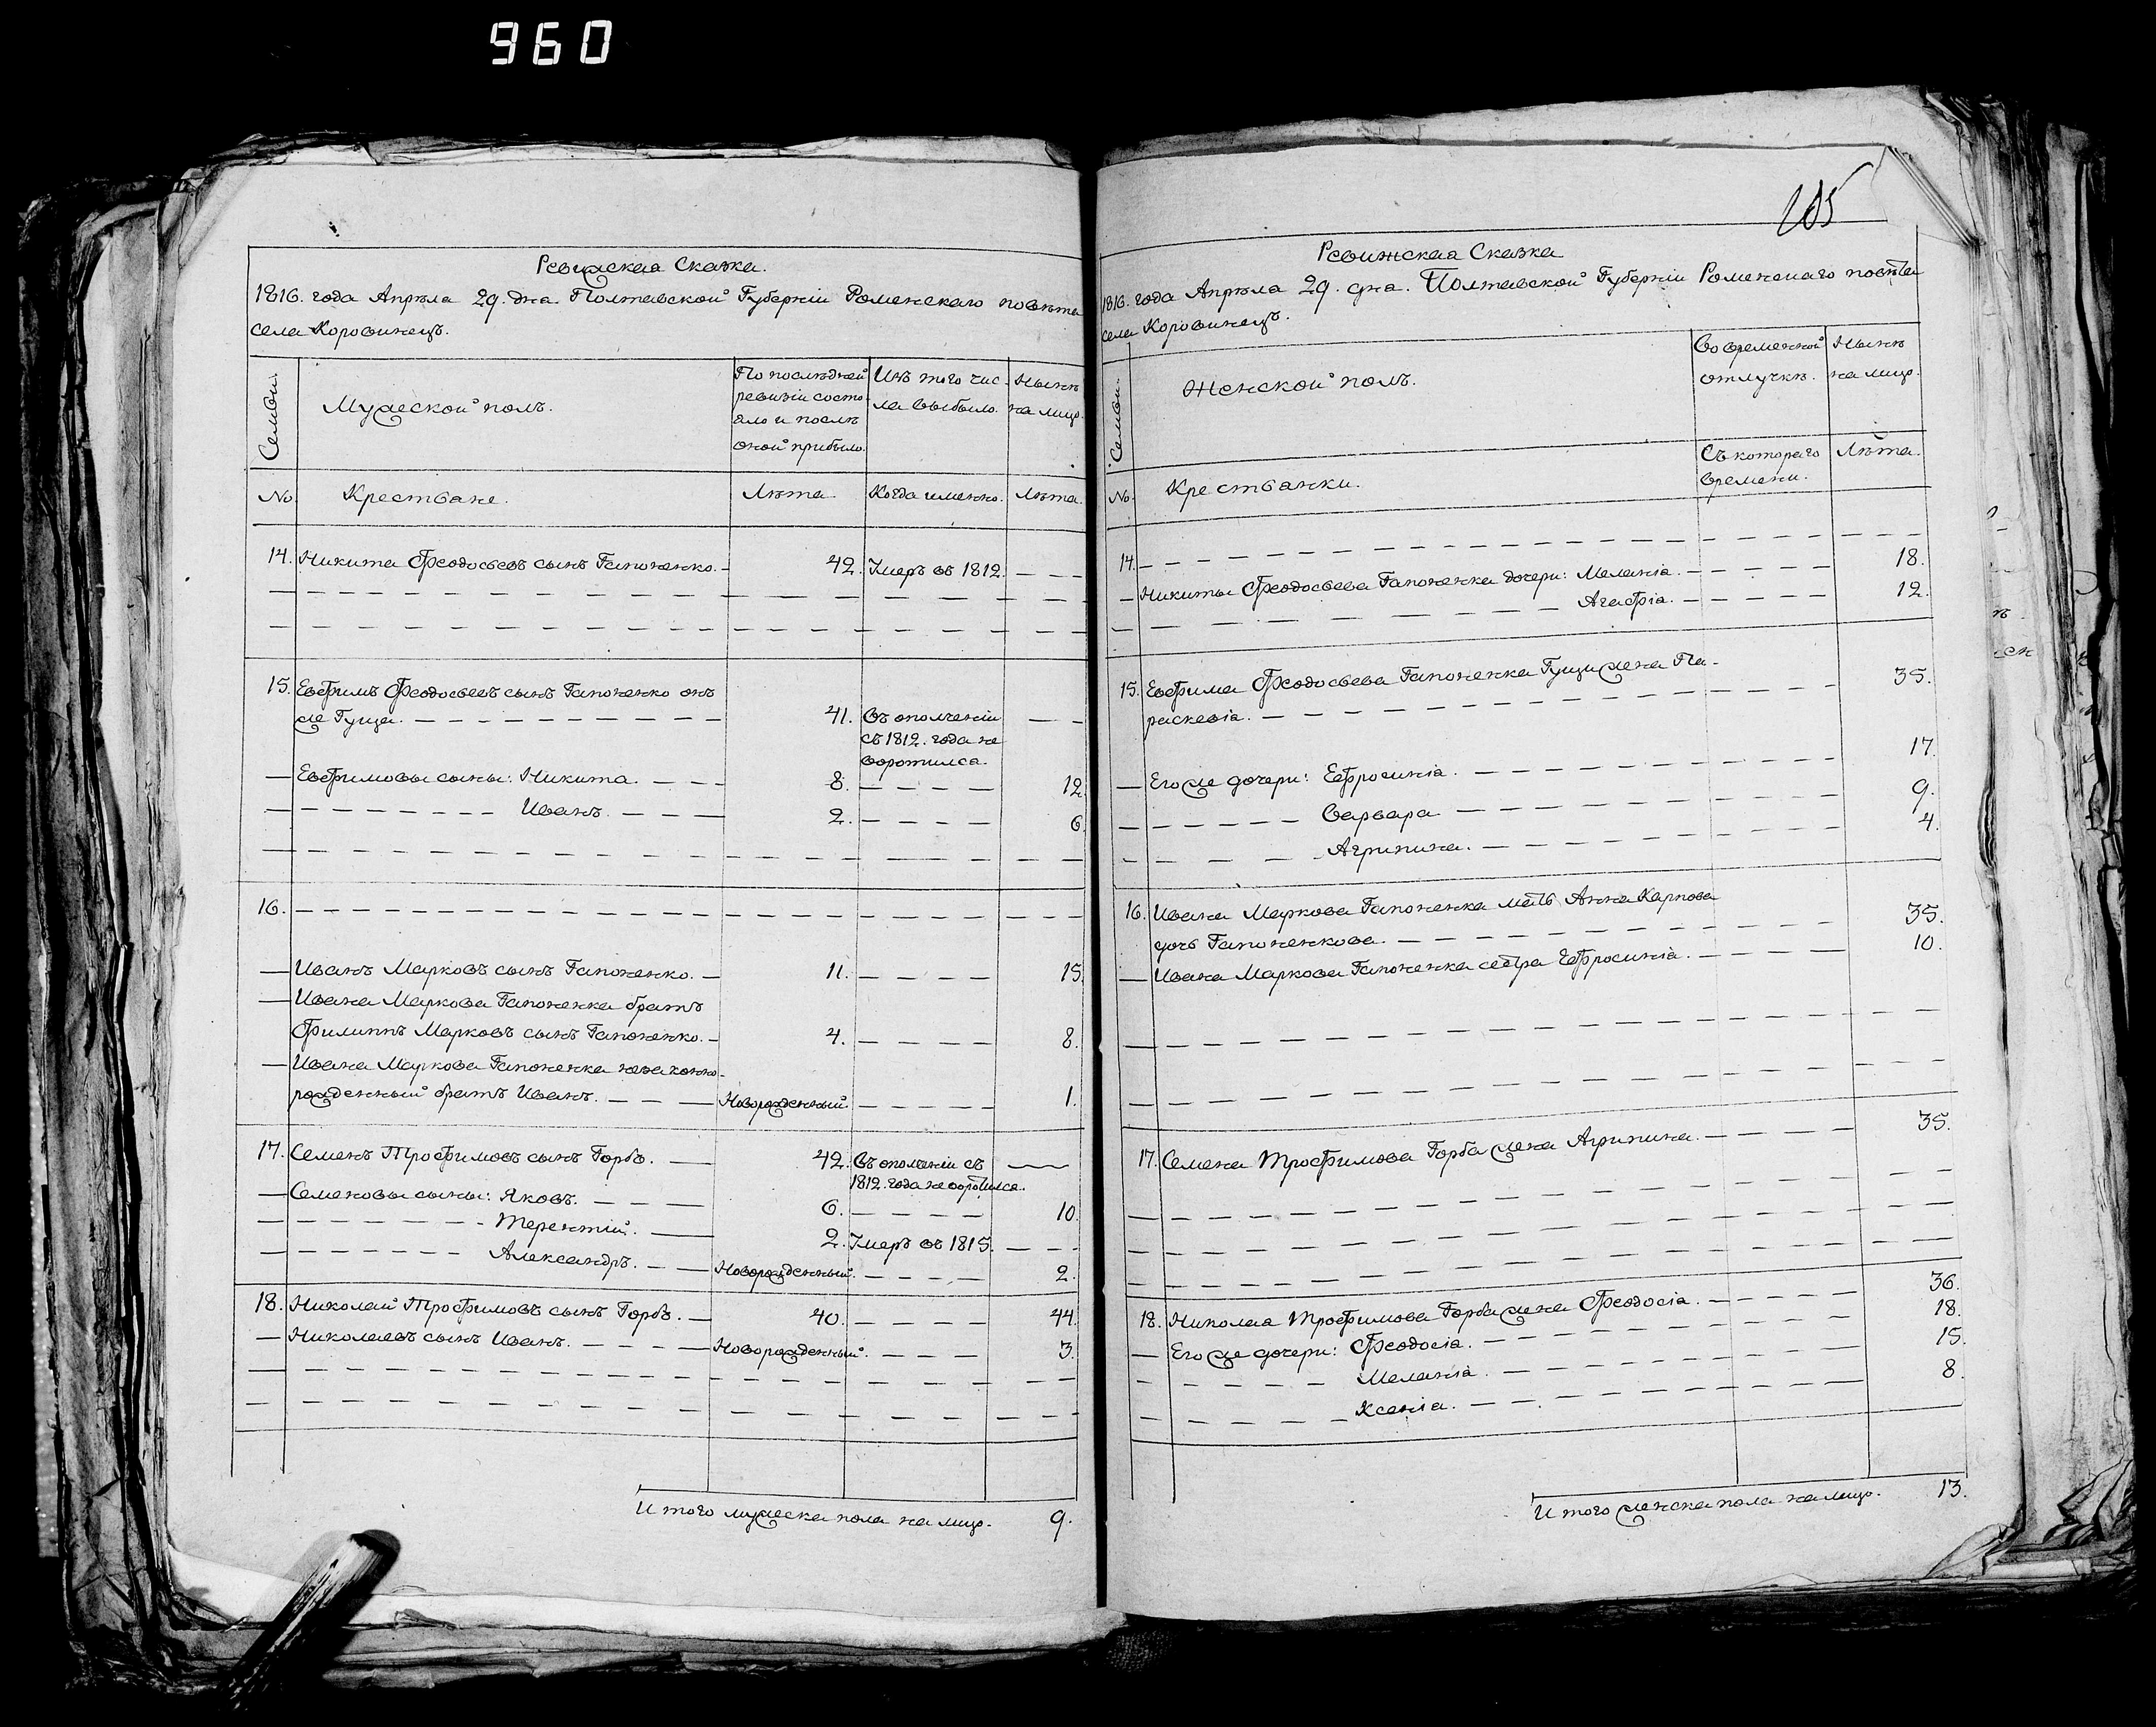 960
Ревижская Сказка.
1816. года Апрѣла 29. дна Полтавской Губернїи Роменскаго повѣта
села Коровинецъ.
Семьи.
Мужеской полъ.
По послѣдней
ревизїи состо-
яло и послѣ
оной прибыло.
Изъ того чис-
ла выбыло.
Нынѣ
на лицо.
No. Крестьяне. Лѣта. Когда именно. Лѣта.
14. Никита Феодосьевъ сынъ Гапоненко. 42. Умеръ въ 1812.
15. Евфимъ Феодосьевъ сынъ Гапоненко онъ
же Гуща. 41. Въ ополченїи
съ 1812. года не
воротился.
Евфимовы сыны: Никита. 8. 12.
Иванъ. 2. 6.
16.
Иванъ Марковъ сынъ Гапоненко. 11. 15.
Ивана Маркова Гапоненка братъ
Филиппъ Марковъ сынъ Гапоненко. 4. 8.
Ивана Маркова Гапоненка незаконно-
рожденный братъ Иванъ. Новорожденный. 1.
17. Семенъ Трофимовъ сынъ Горбъ. 42. Въ ополченїи съ
1812. года не воротился.
Семеновы сыны: Яковъ. 6. 10.
Терентїй. 2. Умеръ въ 1815.
Александръ. Новорожденный. 2.
18. Николай Трофимовъ сынъ Горбъ. 40. 44.
Николаевъ сынъ Иванъ. Новорожденный. 3.
Итого мужеска пола на лицо. 9.
205
Ревижская Сказка
1816. года Апрѣла 29. дна. Полтавской Губернїи Роменскаго повѣта
села Коровинецъ.
Семьи.
Женской полъ.
Во временной
отлучкѣ.
Нынѣ
на лицо.
Съ котораго
времени.
Лѣта.
No. Крестьянки.
14.
Никиты Феодосьева Гапоненка дочери: Меланїа. 18.
Агафїа. 12.
15. Евфима Феодосьева Гапоненка Гущи жена Па-
раскевїа. 35.
Его же дочери: Ефросинїа. 17.
Варвара 9.
Агрипина. 4.
16. Ивана Маркова Гапоненка мать Анна Карпова
дочь Гапоненкова. 35.
Ивана Маркова Гапоненка сестра Ефросинїа. 10.
17. Семена Трофимова Горба жена Агрипина. 35.
18. Николаа Трофимова Горба жена Феодосїа. 36.
Его же дочери: Феодосїа. 18.
Меланїа. 15.
Ксенїа. 8.
Итого женска пола на лицо. 13.